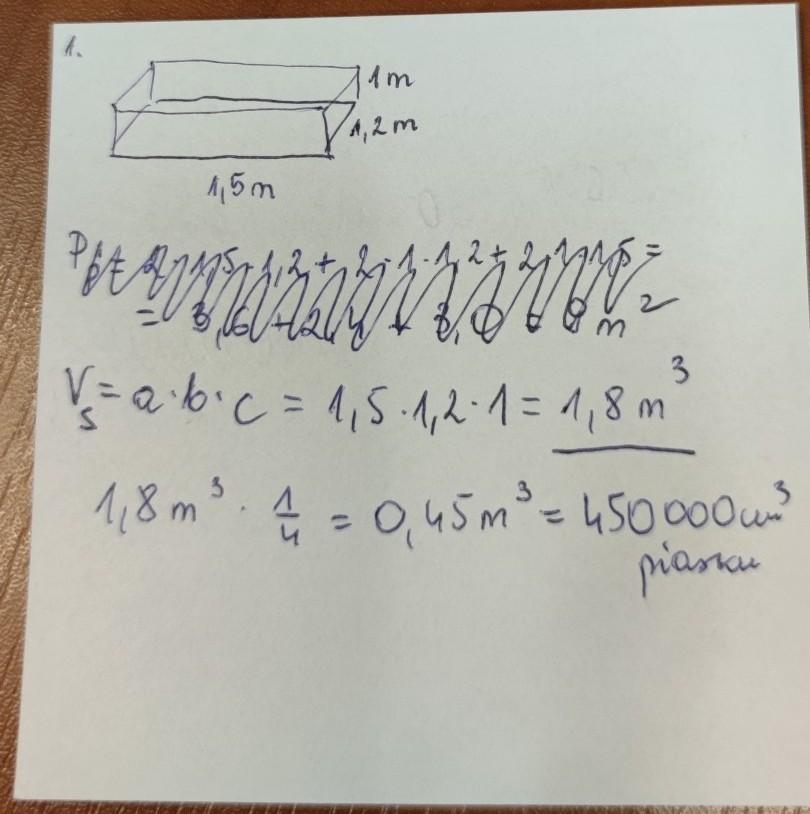 1.
1m
1,2m
1,5m
= 3,6 + 2,4 + 3,0 = 9 m²
Vs = a·b·c = 1,5·1,2·1 = 1,8 m³
1,8 m³ · 1/4 = 0,45 m³ = 450000 cm³
piasku